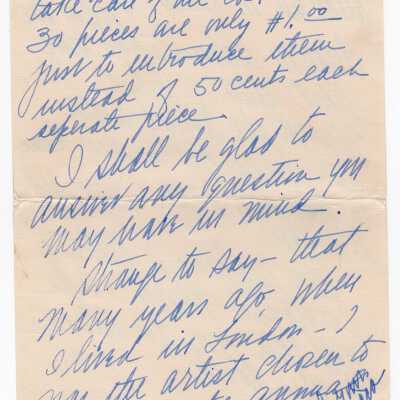 take care of all
30 pieces are only $1.00
just to introduce them
instead of 50 cents each
seperate piece.
I shall be glad to
answer any question you
may have in mind.
Strange to say - that
many years ago, when
I lived in London - I
was the artist chosen to